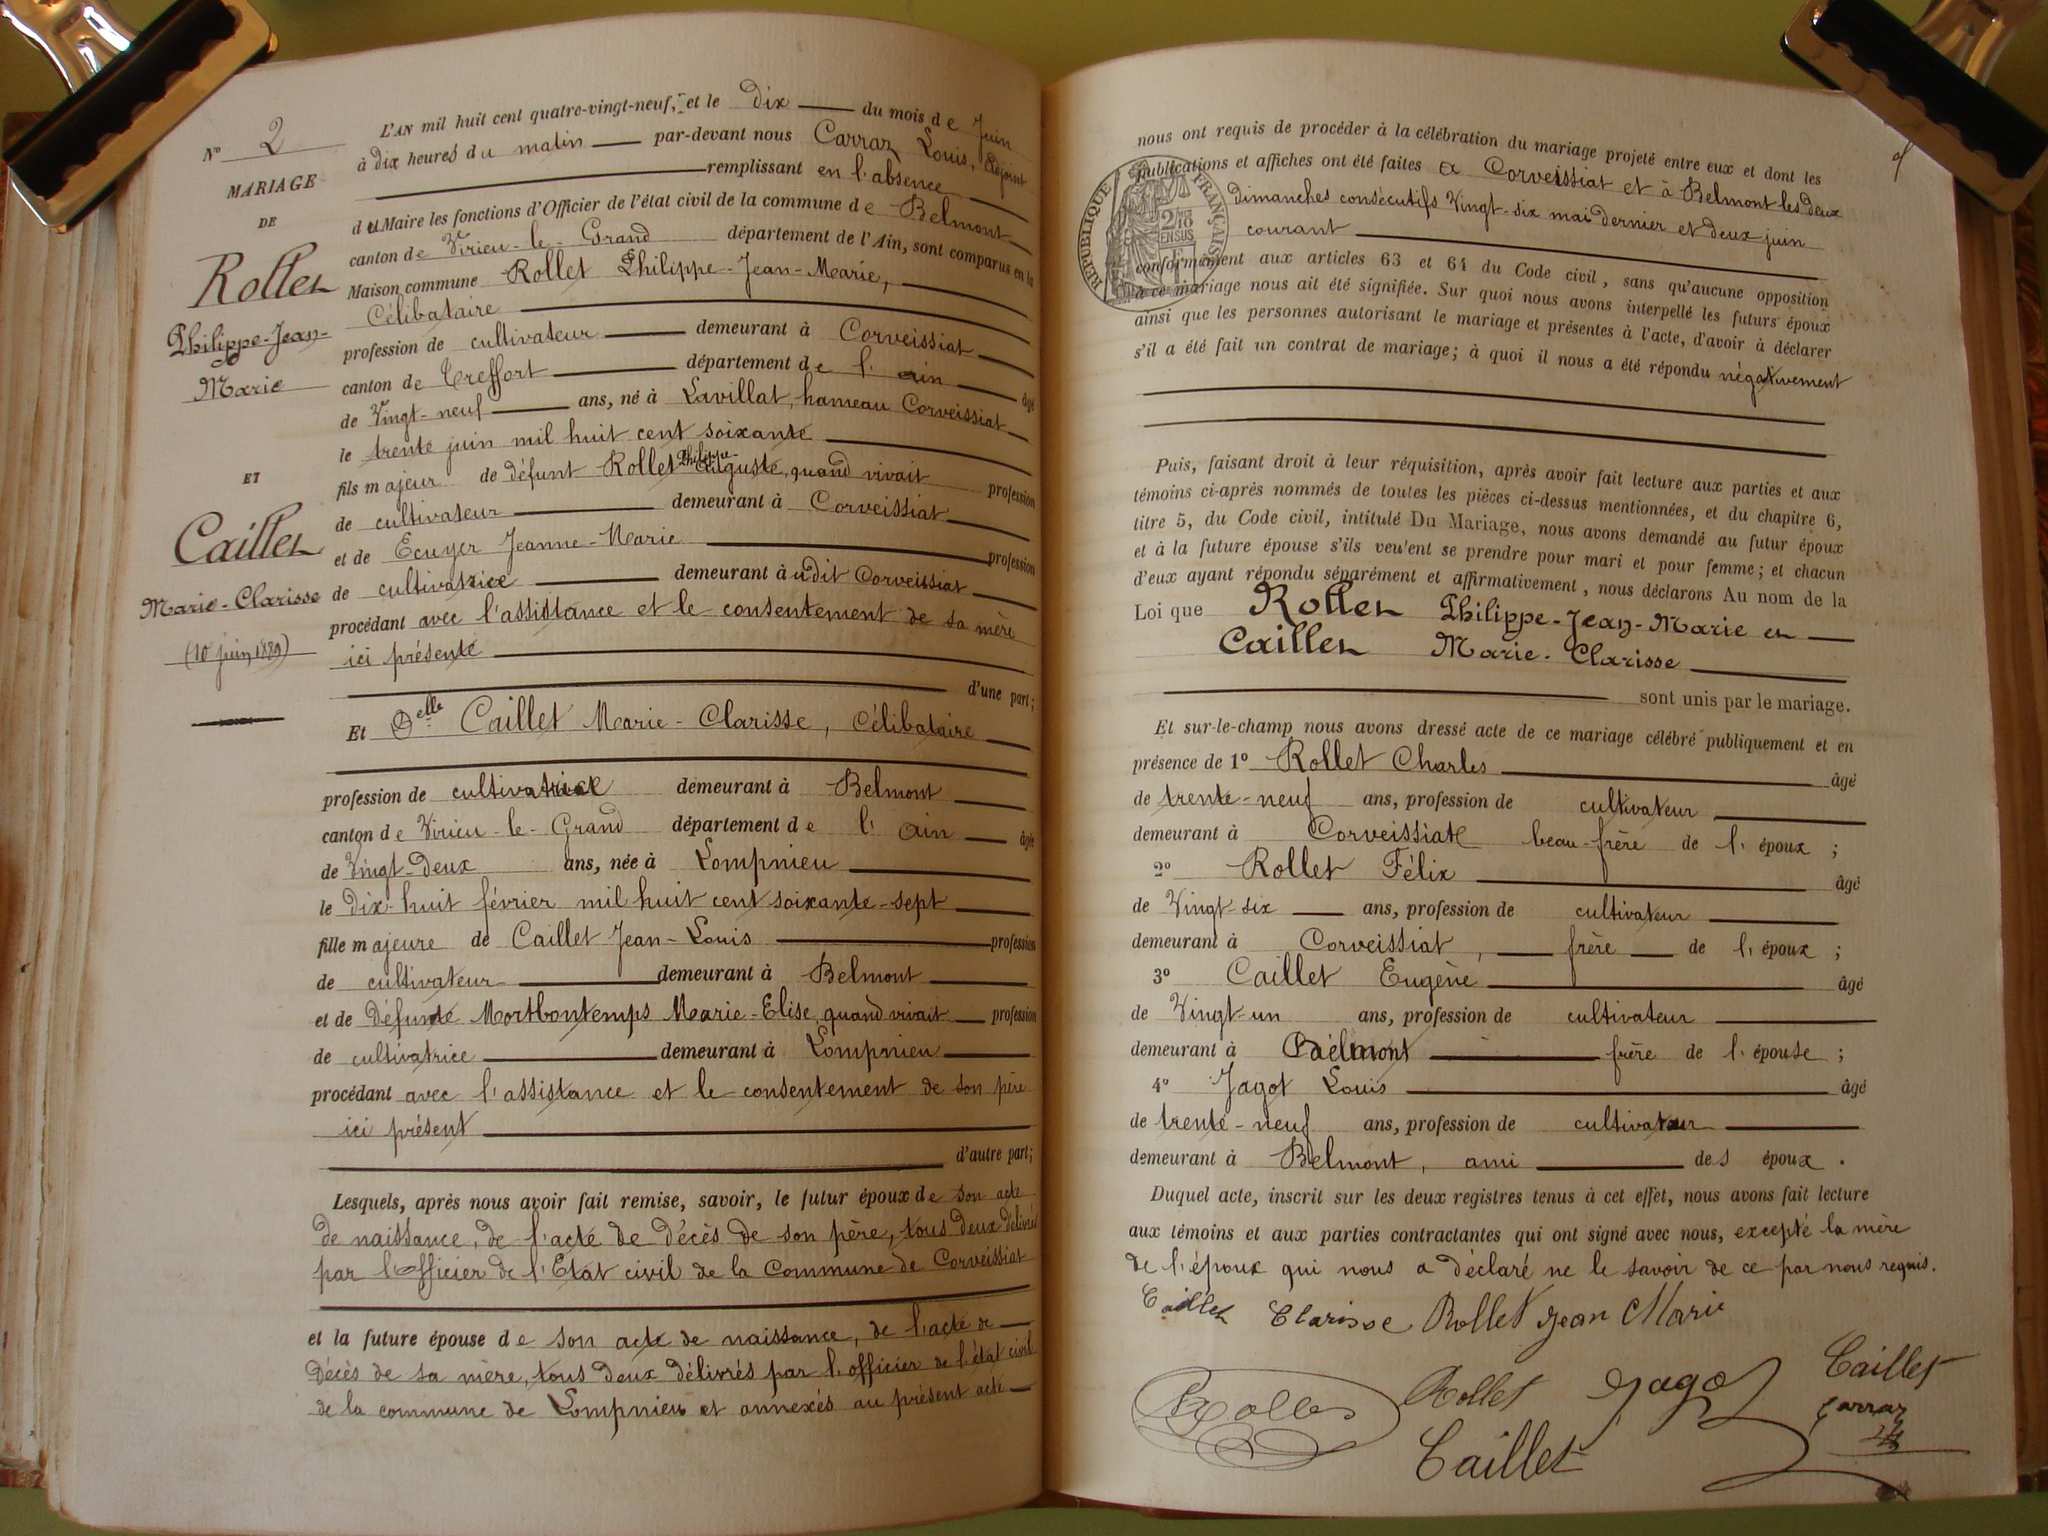 N° 2
MARIAGE
DE
Rollet
Philippe-Jean-
Marie
ET
Caillet
Marie-Clarisse
(10 juin 1889)
L'AN mil huit cent quatre-vingt-neuf, et le Dix du mois de Juin
à dix heures du matin par-devant nous Carraz Louis, Adjoint
remplissant en l'absence
du Maire les fonctions d'Officier de l'état civil de la commune de Belmont
canton de Virieu-le-Grand département de l'Ain, sont comparus en la
Maison commune Rollet Philippe-Jean-Marie,
Célibataire
profession de cultivateur demeurant à Corveissiat
canton de Treffort département de l'ain âgé
de Vingt-neuf ans, né à Lavillat, hameau Corveissiat
le trente juin mil huit cent soixante
fils majeur de défunt Rollet Philippe-Auguste, quand vivait profession
de cultivateur demeurant à Corveissiat
et de Ecuyer Jeanne-Marie profession
de cultivatrice demeurant à udit Corveissiat
procédant avec l'assistance et le consentement de sa mère
ici présente
d'une part;
Et Delle Caillet Marie-Clarisse, Célibataire
profession de cultivatrice demeurant à Belmont
canton de Virieu-le-Grand département de l'ain âgée
de Vingt-deux ans, née à Lompnieu
le Dix-huit février mil huit cent soixante-sept
fille majeure de Caillet Jean-Louis profession
de cultivateur demeurant à Belmont
et de Défunte Mortbontemps Marie-Elise, quand vivait profession
de cultivatrice demeurant à Lompnieu
procédant avec l'assistance et le consentement de son père
ici présent
d'autre part;
Lesquels, après nous avoir fait remise, savoir, le futur époux de son acte
de naissance, de l'acte de décès de son père, tous deux délivrés
par l'Officier de l'Etat civil de la Commune de Corveissiat
et la future épouse de son acte de naissance, de l'acte de
Décès de sa mère, tous deux délivrés par l'officier de l'état civil
de la commune de Lompnieu et annexés au présent acte
nous ont requis de procéder à la célébration du mariage projeté entre eux et dont les
publications et affiches ont été faites à Corveissiat et à Belmont les deux
dimanches consécutifs Vingt-six mai dernier et deux juin
courant
RÉPUBLIQUE FRANÇAISE
2/10 EN SUS
conformément aux articles 63 et 64 du Code civil, sans qu'aucune opposition
à ce mariage nous ait été signifiée. Sur quoi nous avons interpellé les futurs époux
ainsi que les personnes autorisant le mariage et présentes à l'acte, d'avoir à déclarer
s'il a été fait un contrat de mariage; à quoi il nous a été répondu négativement
Puis, faisant droit à leur réquisition, après avoir fait lecture aux parties et aux
témoins ci-après nommés de toutes les pièces ci-dessus mentionnées, et du chapitre 6,
titre 5, du Code civil, intitulé Du Mariage, nous avons demandé au futur époux
et à la future épouse s'ils veulent se prendre pour mari et pour femme; et chacun
d'eux ayant répondu séparément et affirmativement, nous déclarons Au nom de la
Loi que Rollet Philippe-Jean-Marie et
Caillet Marie-Clarisse
sont unis par le mariage.
Et sur-le-champ nous avons dressé acte de ce mariage célébré publiquement et en
présence de 1° Rollet Charles âgé
de trente-neuf ans, profession de cultivateur
demeurant à Corveissiat beau-frère de l'époux ;
2° Rollet Félix âgé
de Vingt-six ans, profession de cultivateur
demeurant à Corveissiat, frère de l'époux ;
3° Caillet Eugène âgé
de Vingt-un ans, profession de cultivateur
demeurant à Belmont frère de l'épouse ;
4° Jagot Louis âgé
de trente-neuf ans, profession de cultivateur
demeurant à Belmont, ami des époux.
Duquel acte, inscrit sur les deux registres tenus à cet effet, nous avons fait lecture
aux témoins et aux parties contractantes qui ont signé avec nous, excepté la mère
de l'époux qui nous a déclaré ne le savoir de ce par nous requis.
Caillet Clarisse Rollet Jean Marie
Rollet Rollet Jagot Caillet
Carraz
Caillet